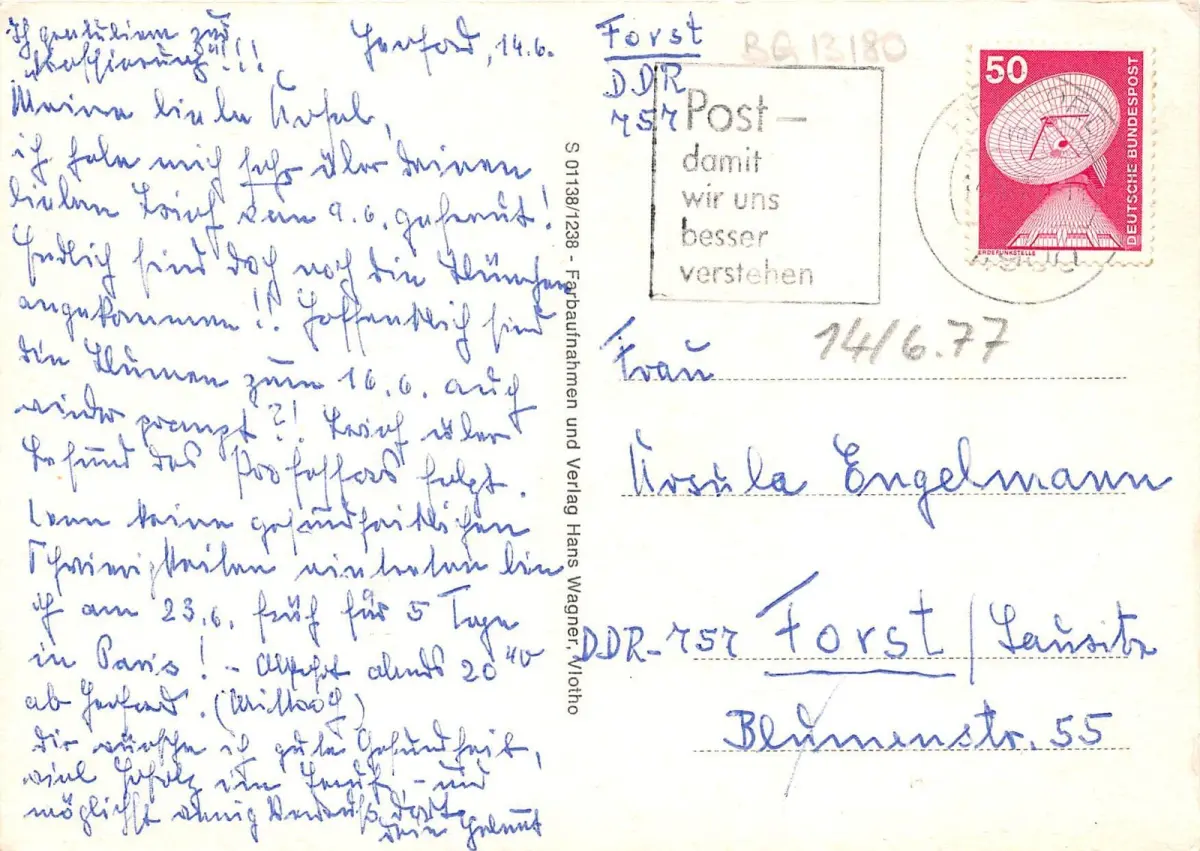 Ich gratuliere zur
Herford, 14.6.
Meine liebe Ursel,
ich habe mich sehr über Deinen
lieben Brief vom 9.6. gefreut!
Endlich sind doch noch die Blümchen
angekommen!! Hoffentlich sind
die Blumen zum 16.6. auch
wieder prompt?! Brief über
Befund des Professors folgt.
Wenn keine gesundheitlichen
Schwierigkeiten eintreten bin
ich am 23.6. früh für 5 Tage
in Paris! - Abfahrt abends 20⁴⁰
ab Herford. (Mittwoch)
Dir wünsche ich gute Gesundheit,
viel Erfolg im Beruf, - und
möglichst wenig Verdruß dort.
Dein Helmut
S 01138/1238 - Farbaufnahmen und Verlag Hans Wagner, Vlotho
Forst
DDR
757
BG 13/80
Post –
damit
wir uns
besser
verstehen
50
DEUTSCHE BUNDESPOST
ERDEFUNKSTELLE
14/6.77
Frau
Ursula Engelmann
DDR-757 Forst/Lausitz
Blumenstr. 55